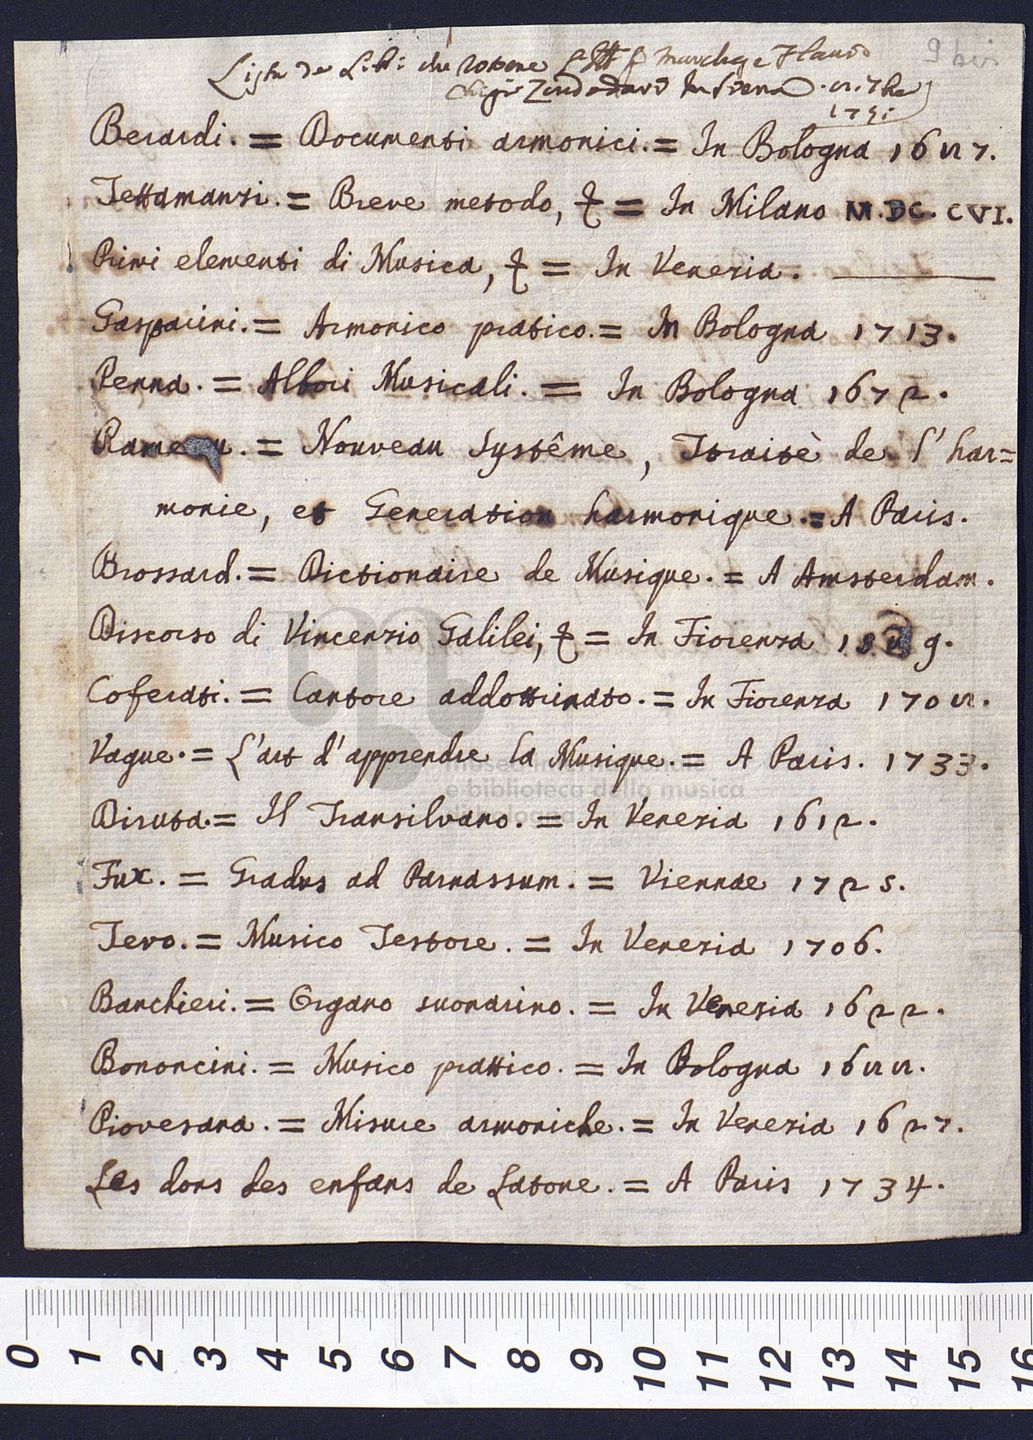 Lista de Libri che
Chigi Zondadari In Siena
9 bis
Berardi. = Documenti armonici. = In Bologna 1687.
Tettamanzi. = Breve metodo, &c = In Milano M.DC.CVI.
Primi elementi di Musica, &c = In Venezia.
Gasparini. = Armonico pratico. = In Bologna 1713.
Penna. = Albori Musicali. = In Bologna 1672.
Rameau. = Nouveau Systême, Traitè de l'har=
monie, et Generation harmonique. = A Paris.
Brossard. = Dictionaire de Musique. = A Amsterdam.
Discorso di Vincenzio Galilei, &c = In Fiorenza
Coferati. = Cantore addottrinato. = In Fiorenza 1708.
Vague. = L'art d'apprendre la Musique. = A Paris. 1733.
museo internazionale
e biblioteca della musica
di bologna
Diruta. = Il Transilvano. = In Venezia 1612.
Fux. = Gradus ad Parnassum. = Viennae 1725.
Tevo. = Musico Testore. = In Venezia 1706.
Banchieri. = Organo suonarino. = In Venezia 1622.
Bononcini. = Musico prattico. = In Bologna 1688.
Piovesana. = Misure armoniche. = In Venezia 1627.
Les dons des enfans de Latone. = A Paris 1734.
0 1 2 3 4 5 6 7 8 9 10 11 12 13 14 15 16